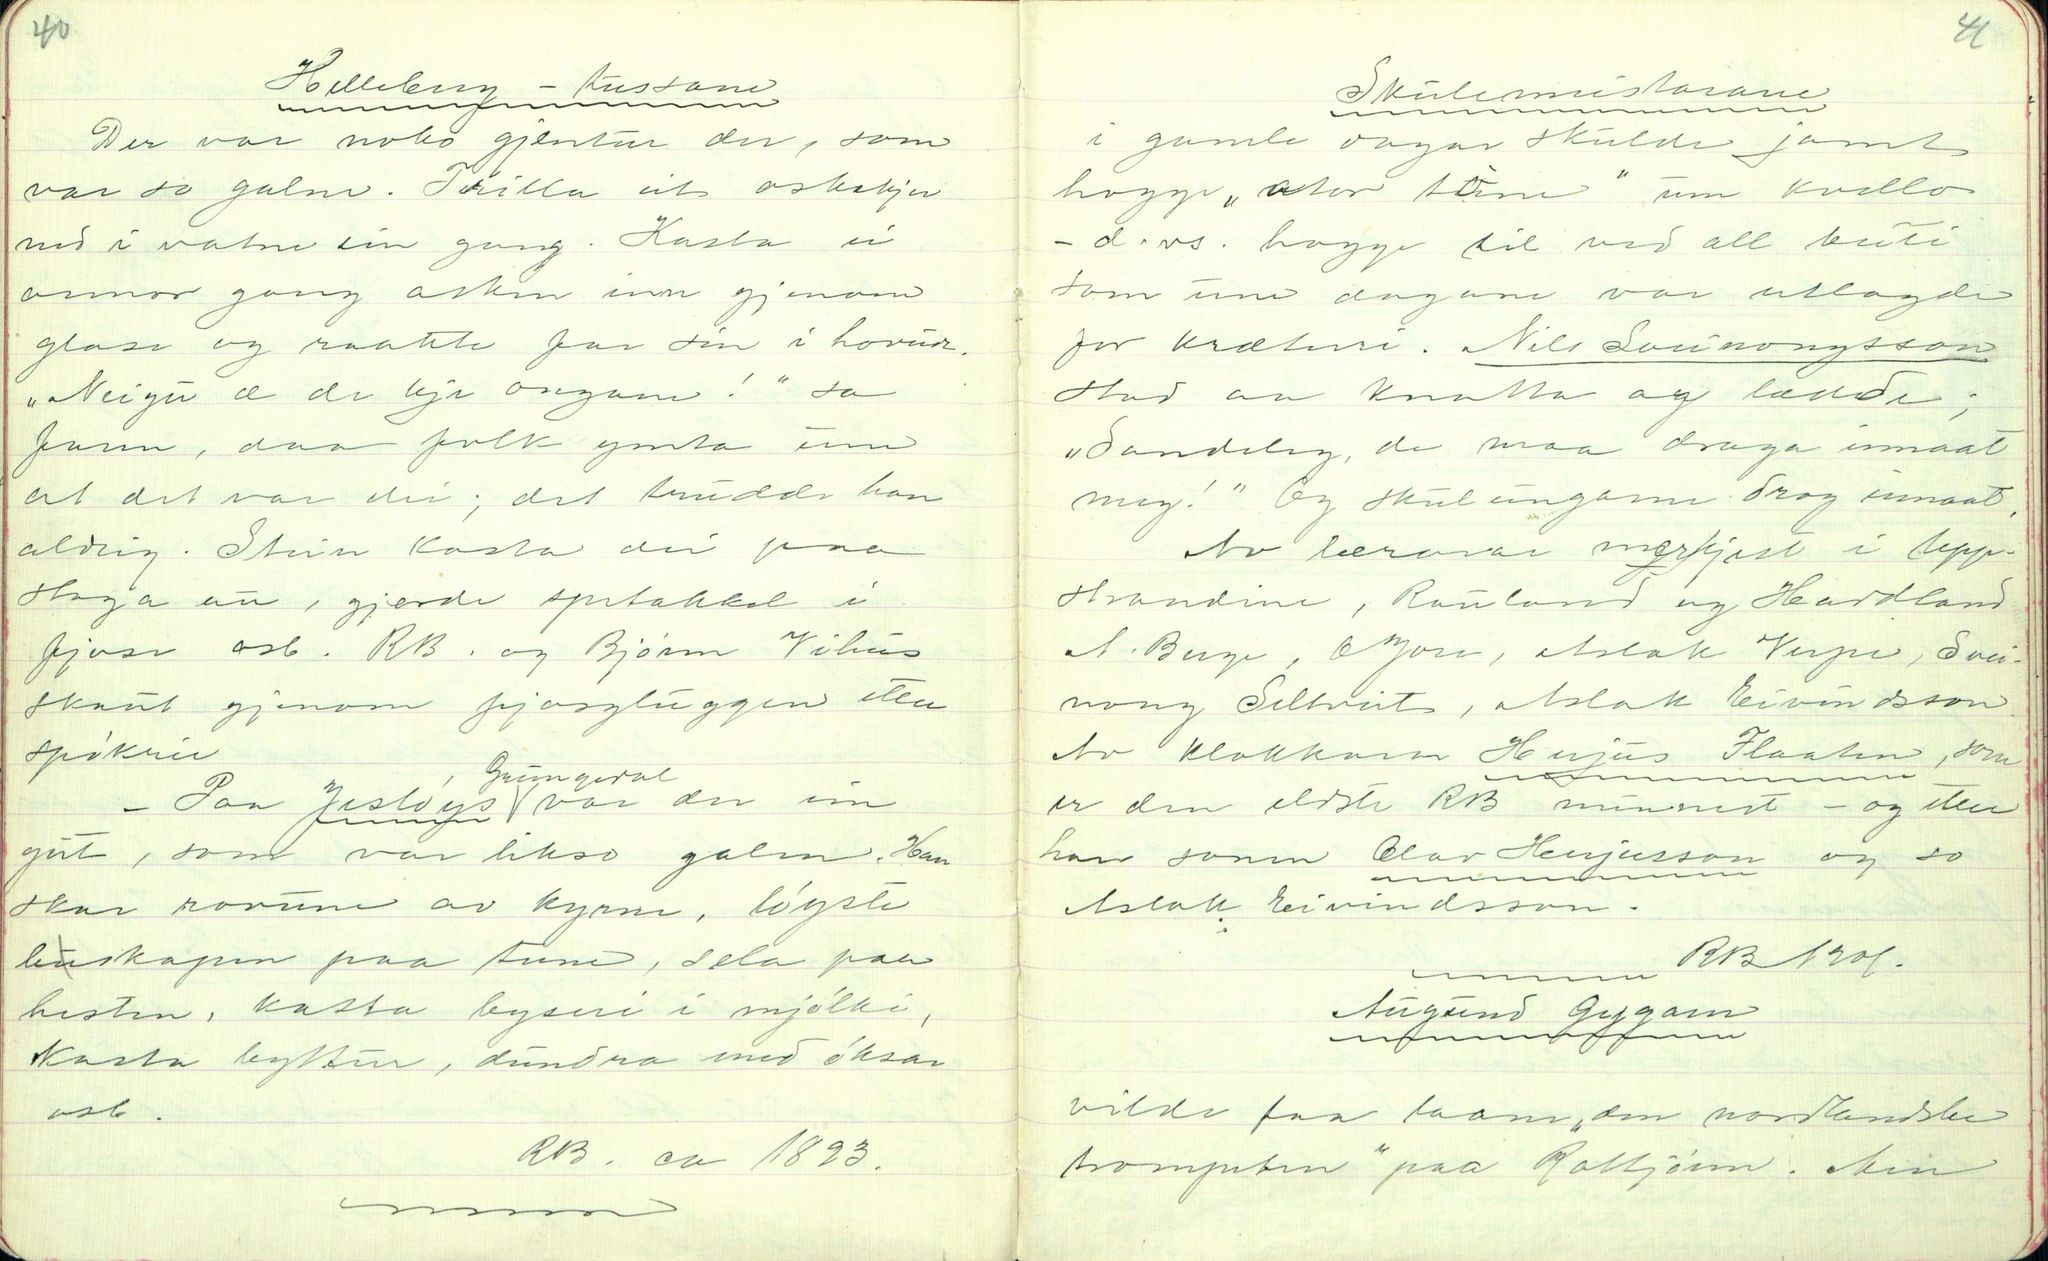 40
Helleberg-tussane
Der var noko gjentur der, som
var so galne. Trilla ut oskekjer
ned i vatne ein gong. Kasta ei
annor gong asken inn gjenom
glase og raakte far sin i hovud.
„Neigu æ de kje ongane!" sa
faren, daa folk ymta um
at det var dei; det trudde han
aldrig. Stein kasta dei paa
stoga au, gjorde spetakkel i
fjøse osb. RB. og Bjørn Vihus
skaut gjenom fjosgluggen etter
spøkrie
Grungedal
- Paa Jesløys var der ein
gut, som var likso galen. Han
skar rovune av kyrne, løyste
buskapen paa tune, sela paa
hesten, kasta byseri i mjølki,
kasta byttur, dundra med øksar
osb.
RB. ca 1893.
41
Skulemeistarane
i gamle dagar skulde jamt
hogge „ator tune" um kvelle
- d.vs. hogge til ved all beiti
som um dagane var utlagde
for kræturi. Nils Sveinongsson
stod aa knatta og lædde;
„Sandeleg, de maa draga imaat
meg!" Og skulungarne drog imaat.
Av lærarar merkjest i Upp-
strandine, Rauland og Hardland
A. Berge, O Jore, Aslak Verpe, Svei-
nong Seltveit, Aslak Eivindsson.
Av klokkarar Herjus Flaaten, som
er den eldste RB minnest - og etter
han sonen Olav Herjusson og so
Aslak Eivindsson.
RB 1901.
Augund Gygarn
vilde faa laane „den nordlandske
trompeten" paa Kostjønn. Min